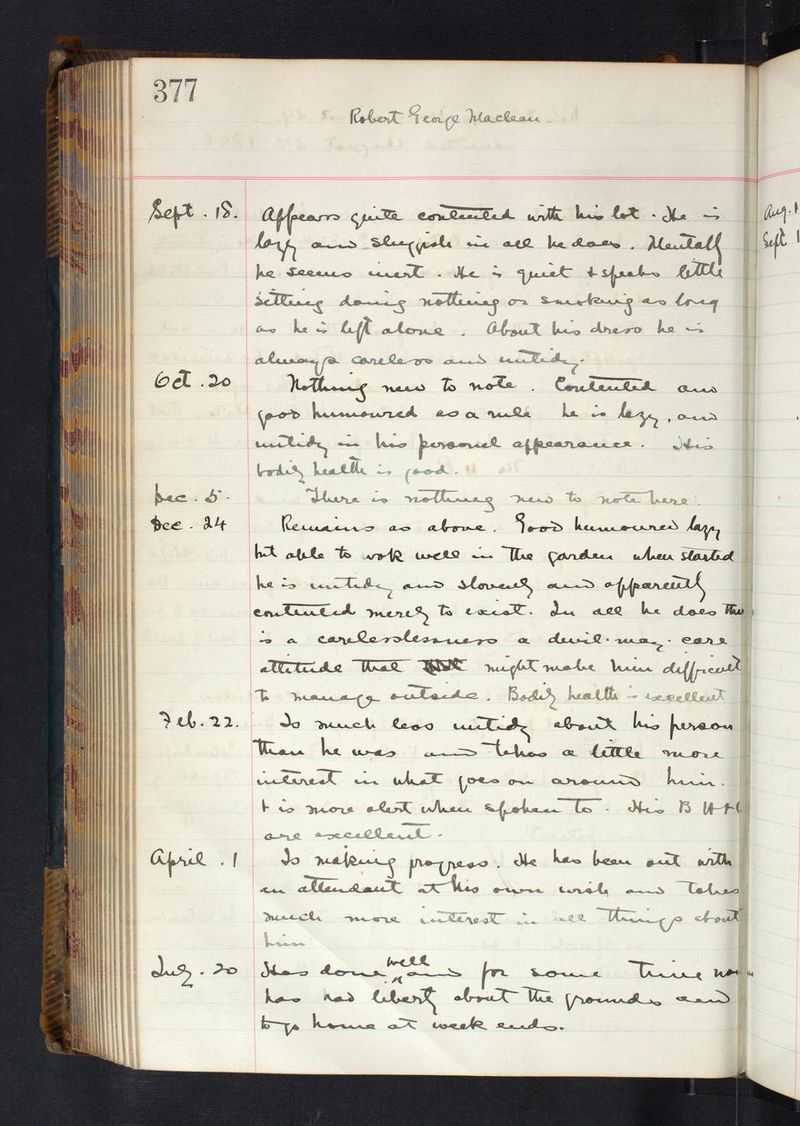 377
Robert George Maclean.
Sept. 18. Appears quite contented with his lot. He is
lazy and sluggish in all he does. Mentally
he seems inert. He is quiet & speaks little
sitting doing nothing or smoking as long
as he is left alone. About his dress he is
always careless and untidy.
Oct. 20 Nothing new to note. Contented and
good humoured as a rule he is lazy, and
untidy in his personal appearance. His
bodily health is good.
Dec. 5. There is nothing new to note here.
Dec. 24 Remains as above. Good humoured lazy
but able to work well in the garden when started
he is untidy and slovenly and apparently
contented merely to exist. In all he does there
is a carelesslessness a devil-may-care
attitude that might make him difficult
to manage outside. Bodily health is excellent
Feb. 22. Is much less untidy about his person
than he was and takes a little more
interest in what goes on around him.
& is more alert when spoken to. His B H & C
are excellent.
April. 1 Is making progress. He has been out with
an attendant at his own wish and takes
much more interest in all things about
him
July. 20 Has done well and for some time now
has had liberty about the grounds and
to go home at week ends.
Aug. 1
Sept 1